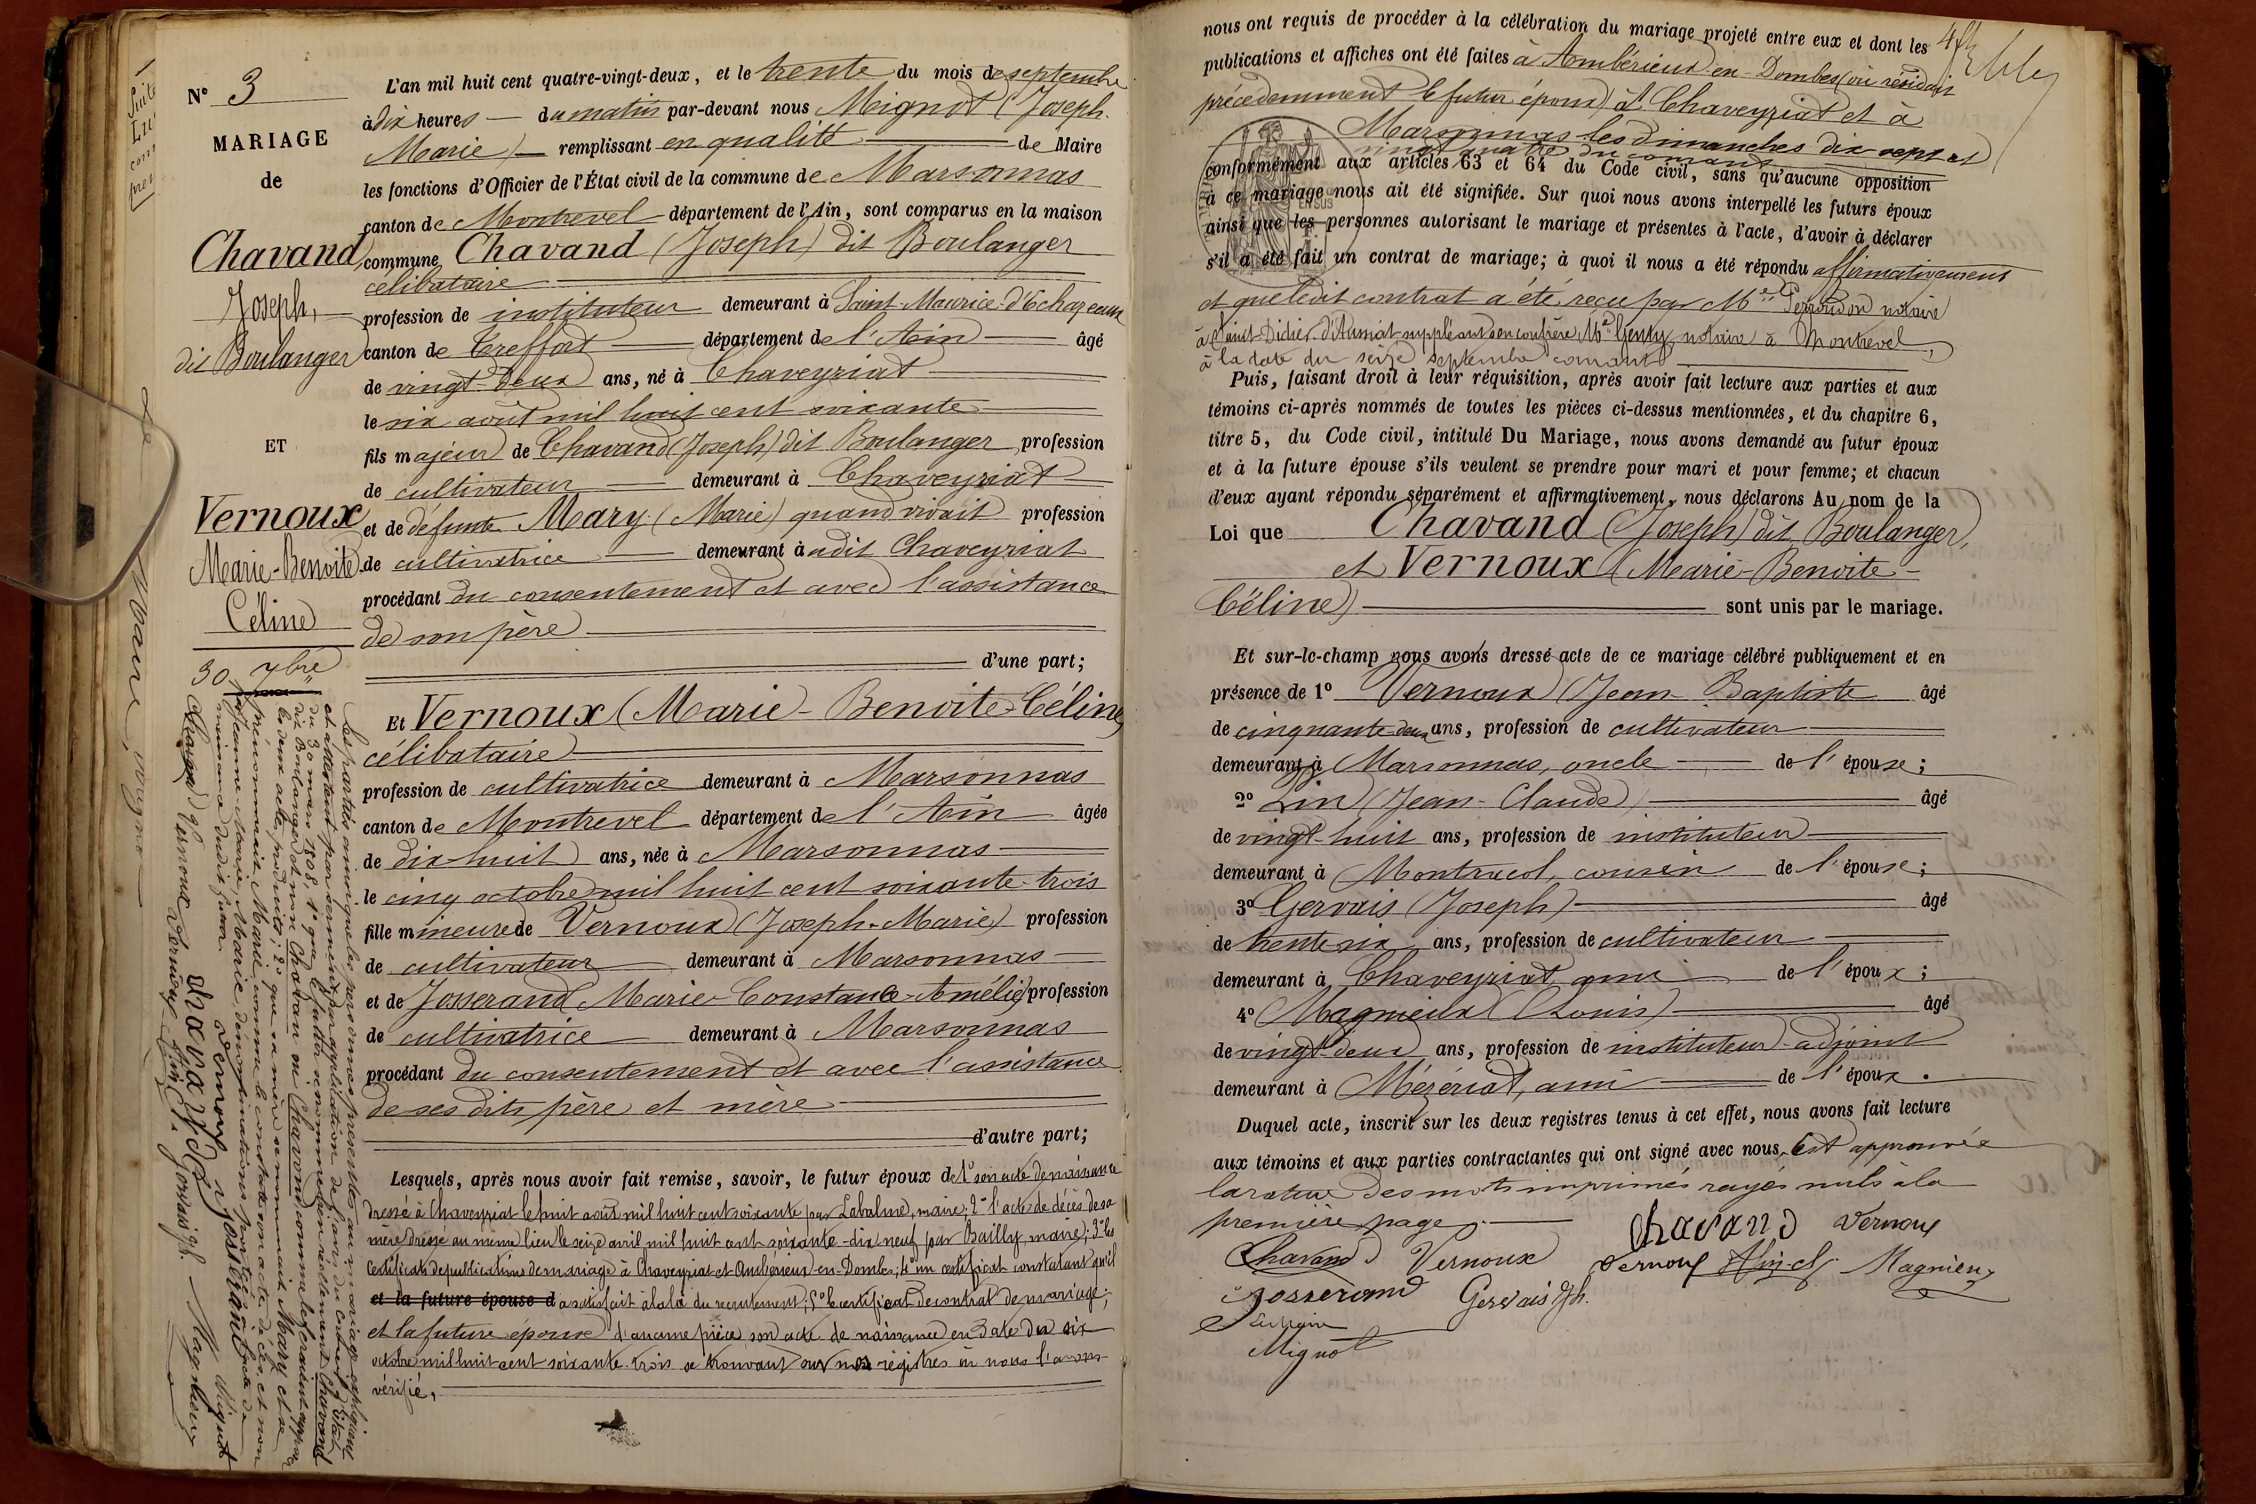 N° 3
MARIAGE
de
Chavand
Joseph,
dit Boulanger
ET
Vernoux
Marie-Benoite
Céline
30 7bre
L'an mil huit cent quatre-vingt-deux, et le trente du mois de septembre
à dix heures du matin par-devant nous Mignot (Joseph
Marie) remplissant en qualité de Maire
les fonctions d'Officier de l'État civil de la commune de Marsonnas
canton de Montrevel département de l'Ain, sont comparus en la maison
commune Chavand (Joseph) dit Boulanger
célibataire
profession de instituteur demeurant à Saint-Maurice-d'Echazeaux
canton de Treffort département de l'Ain âgé
de vingt-deux ans, né à Chaveyriat
le six août mil huit cent soixante
fils majeur de Chavand (Joseph) dit Boulanger profession
de cultivateur demeurant à Chaveyriat
et de défunte Mary (Marie) quand vivait profession
de cultivatrice demeurant à udit Chaveyriat
procédant du consentement et avec l'assistance
de son père
d'une part;
Et Vernoux (Marie-Benoite-Céline)
célibataire
profession de cultivatrice demeurant à Marsonnas
canton de Montrevel département de l'Ain âgée
de dix-huit ans, née à Marsonnas
le cinq octobre mil huit cent soixante-trois
fille mineure de Vernoux (Joseph-Marie) profession
de cultivateur demeurant à Marsonnas
et de Josserand (Marie-Constance-Amélie) profession
de cultivatrice demeurant à Marsonnas
procédant du consentement et avec l'assistance
de ses dits père et mère
d'autre part;
Lesquels, après nous avoir fait remise, savoir, le futur époux de 1° son acte de naissance
dressé à Chaveyriat le huit août mil huit cent soixante par Labalme, maire; 2° l'acte de décès de sa
mère dressé au même lieu le seize avril mil huit cent soixante-dix neuf par Bailly, maire; 3° les
certificats de publications de mariage à Chaveyriat et Ambérieux-en-Dombes; 4° un certificat constatant qu'il
et la future épouse d a satisfait à la loi du recrutement; 5° le certificat de contrat de mariage;
et la future épouse d'aucune pièce, son acte de naissance en date du six
octobre mil huit cent soixante-trois se trouvant sur nos registres où nous l'avons
vérifié,
Les parties ainsi que les personnes présentes au mariage expliquent
et attestent par serment
du 30 mars 1808, 1° que le futur se nomme
dit Boulanger et non Chavan ni Chavon comme
les deux actes produits; 2° que sa mère se nommait Mary et se
prénommait Marie comme le constate son acte de décès, et non
Jeanne-Marie, Marie, dénominations portées à l'acte de
naissance dudit futur.
Chavand Vernoux Vernoux
Chavand Josserand Mignot
Gervais jh. Magnieux
nous ont requis de procéder à la célébration du mariage projeté entre eux et dont les
publications et affiches ont été faites à Ambérieux-en-Dombes (où résidait
précédemment le futur époux) à Chaveyriat et à
Marsonnas les dimanches dix-sept et
vingt-quatre du courant
conformément aux articles 63 et 64 du Code civil, sans qu'aucune opposition
à ce mariage nous ait été signifiée. Sur quoi nous avons interpellé les futurs époux
ainsi que les personnes autorisant le mariage et présentes à l'acte, d'avoir à déclarer
s'il a été fait un contrat de mariage; à quoi il nous a été répondu affirmativement
et que ledit contrat a été reçu par Me Perroudon notaire
à Saint-Didier-d'Aussiat suppléant son confrère Me Genty, notaire à Montrevel,
à la date du seize septembre courant
Puis, faisant droit à leur réquisition, après avoir fait lecture aux parties et aux
témoins ci-après nommés de toutes les pièces ci-dessus mentionnées, et du chapitre 6,
titre 5, du Code civil, intitulé Du Mariage, nous avons demandé au futur époux
et à la future épouse s'ils veulent se prendre pour mari et pour femme; et chacun
d'eux ayant répondu séparément et affirmativement, nous déclarons Au nom de la
Loi que Chavand (Joseph) dit Boulanger,
et Vernoux (Marie-Benoite-
Céline) sont unis par le mariage.
Et sur-le-champ nous avons dressé acte de ce mariage célébré publiquement et en
présence de 1° Vernoux (Jean-Baptiste âgé
de cinquante-deux ans, profession de cultivateur
demeurant à Marsonnas, oncle de l'épouse;
2° Lin (Jean-Claude) âgé
de vingt-huit ans, profession de instituteur
demeurant à Montracol, cousin de l'épouse;
3° Gervais (Joseph) âgé
de trente-six ans, profession de cultivateur
demeurant à Chaveyriat, ami de l'époux;
4° Magnieux (Louis) âgé
de vingt-deux ans, profession de instituteur-adjoint
demeurant à Mézériat, ami de l'époux.
Duquel acte, inscrit sur les deux registres tenus à cet effet, nous avons fait lecture
aux témoins et aux parties contractantes qui ont signé avec nous. Est approuvée
la rature des mots imprimés rayés nuls à la
première page.
Chavand Vernoux
Chavand Vernoux Vernoux Magnieux
Josserand Gervais jh.
Mignot